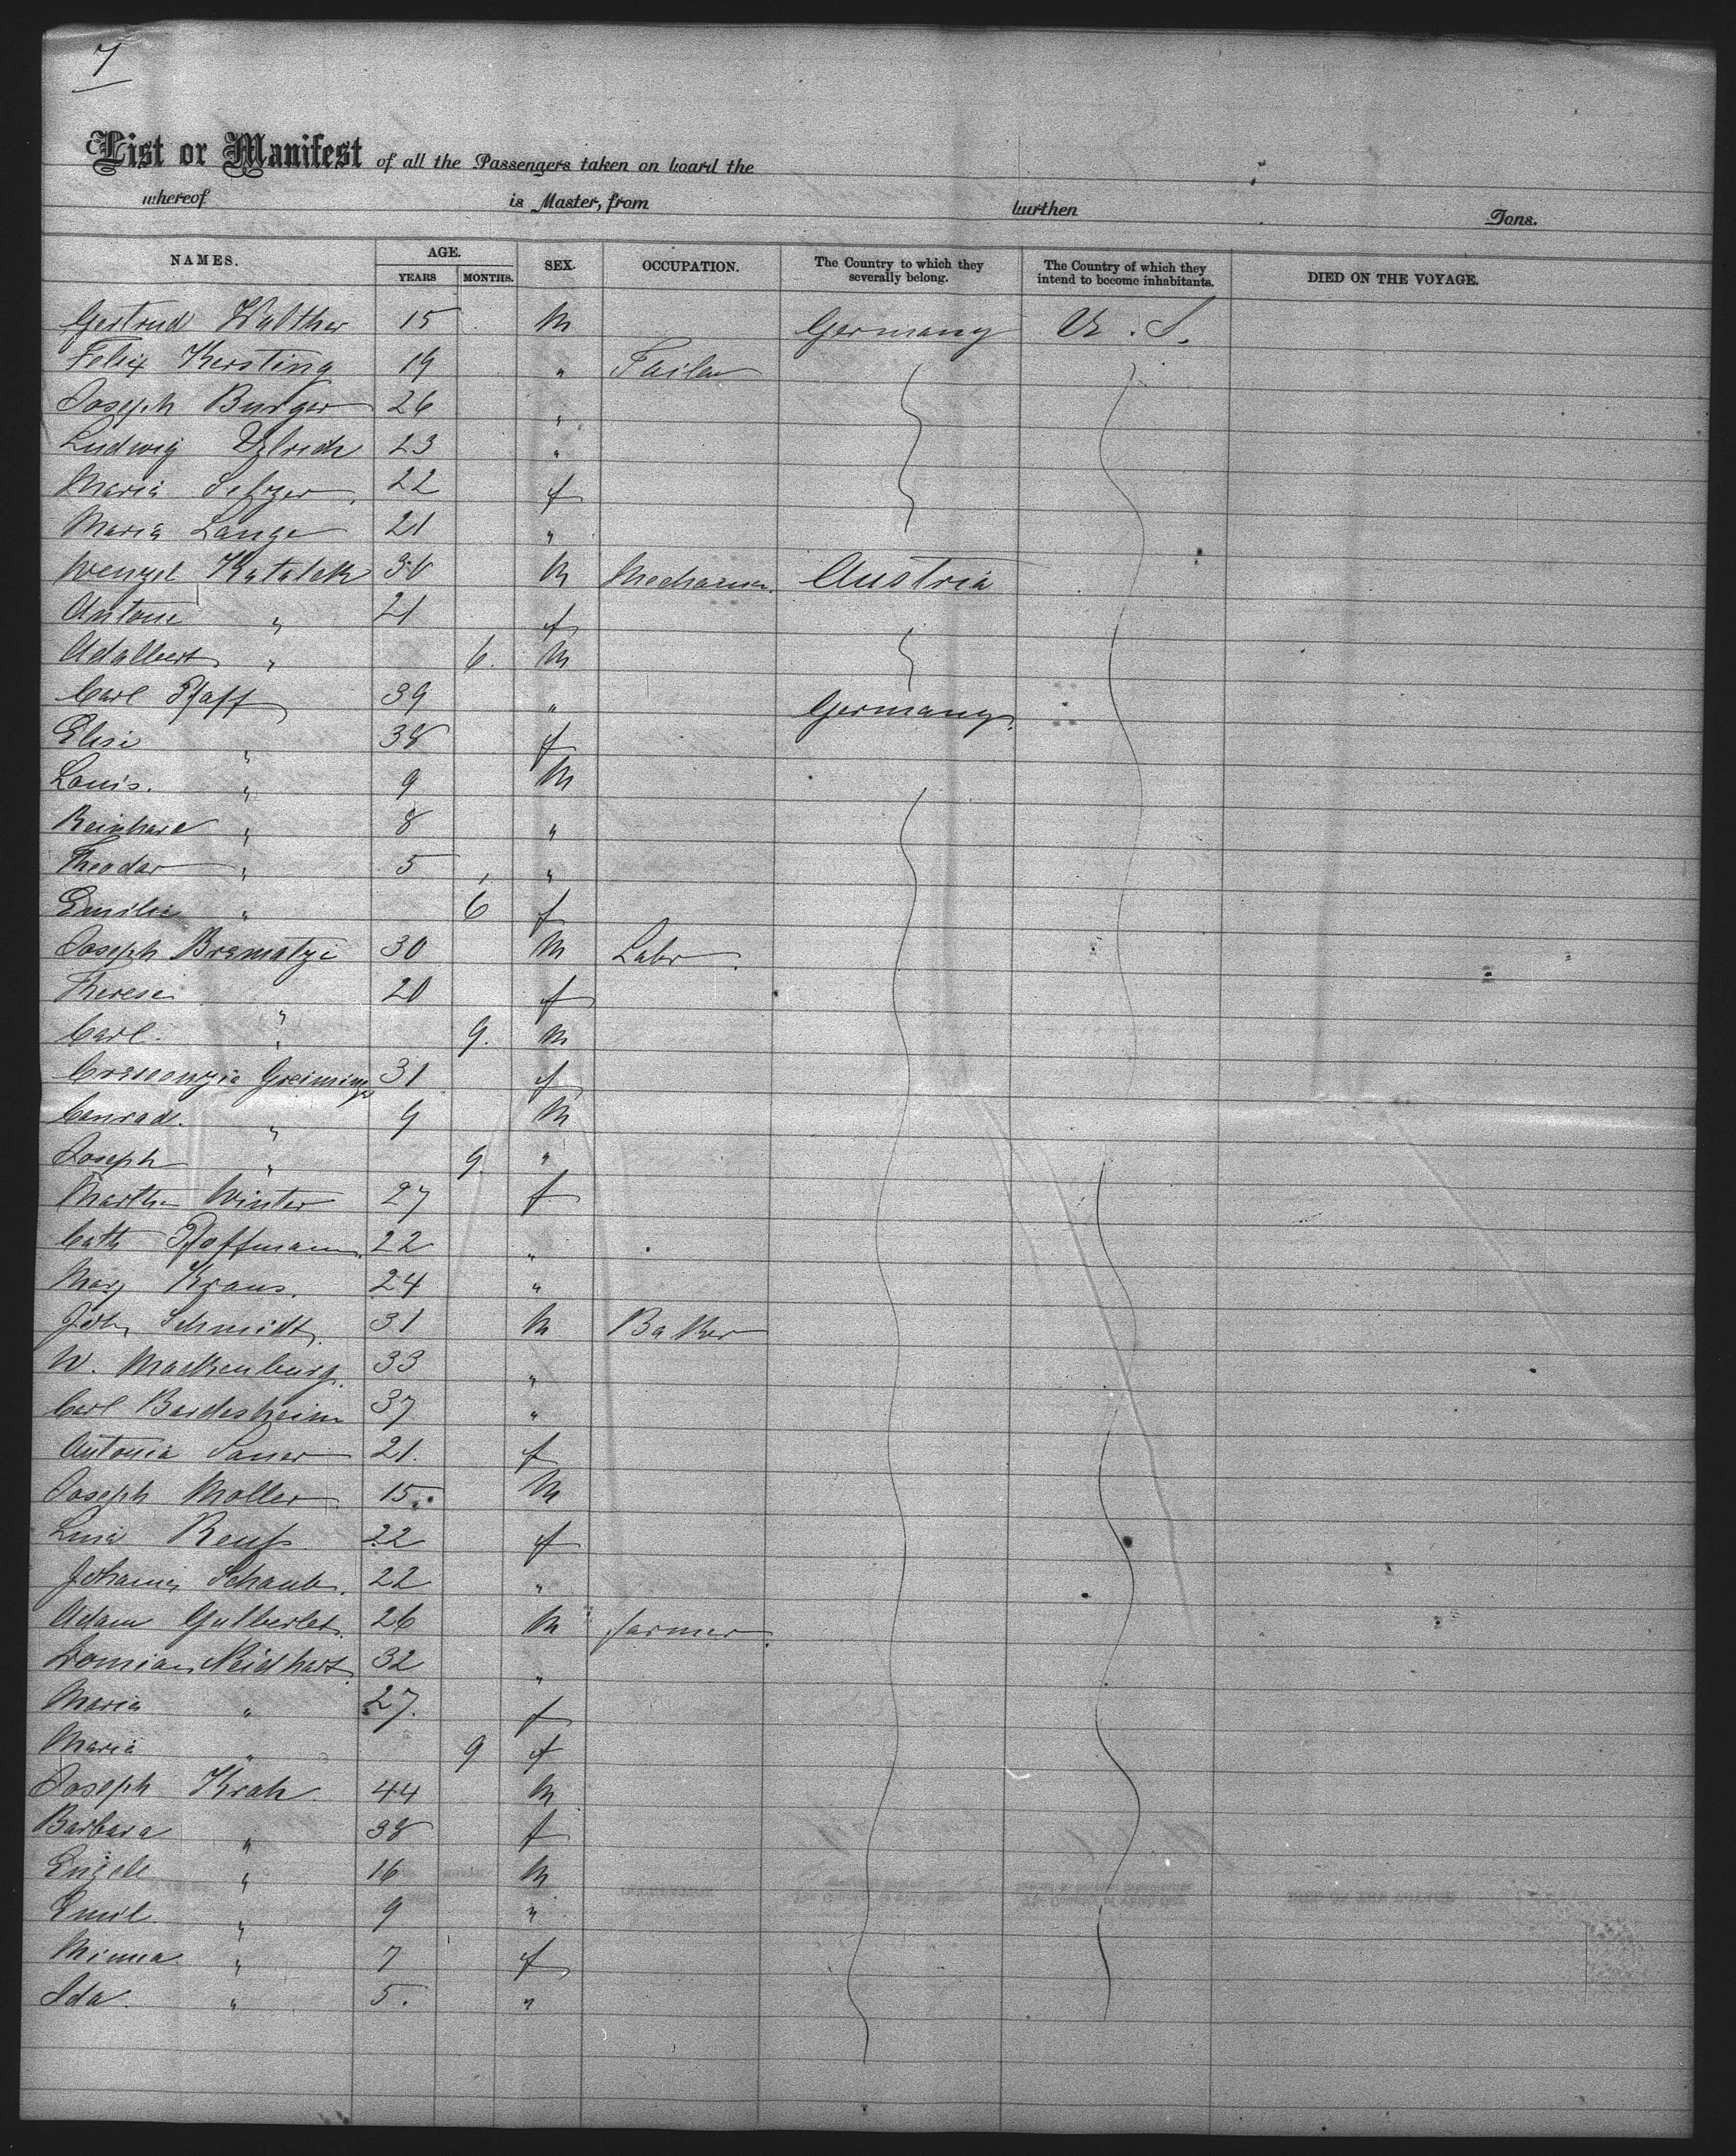 7
List or Manifest of all the Passengers taken on board the
whereof is Master, from burthen Tons.
NAMES. AGE. YEARS MONTHS. SEX. OCCUPATION. The Country to which they severally belong. The Country of which they intend to become inhabitants. DIED ON THE VOYAGE.
Gertrud Walther 15 M Germany U. S.
Felix Kersting 19 " Tailor
Joseph Burger 26 "
Ludwig Ulrich 23 "
Maria 22 f
Maria Lange 21 "
Wenzel Katalek 30 M Austria
Antoni " 21 f
Adalbert " 6. M
Carl Pfaff 39 " Germany.
Elise " 38 f
Louis. " 9 M
Reinhard " 8 "
Theodor " 5 "
Emilie " 6 f
Joseph 30 M Labr.
Therese " 20 f
Carl. " 9. M
31 f
Conrad. " 9 M
Joseph " 9. "
Martha Winter 27 f
Cath Pfaffmann. 22 "
Mary Kraus. 24 "
John Schmidt. 31 M Baker
W. Mackenburg. 33 "
Carl Bardesheim 37 "
Antonia Sauer 21. f
Joseph Moller 15. M
Reuss 22 f
Schaub. 22 "
Adam 26 M farmer.
Neidhart 32 "
Maria " 27. f
Maria " 9 f
Joseph Krah 44 M
Barbara " 38 f
16 M
Emil. " 9 "
Minna " 7 f
Ida. " 5. "